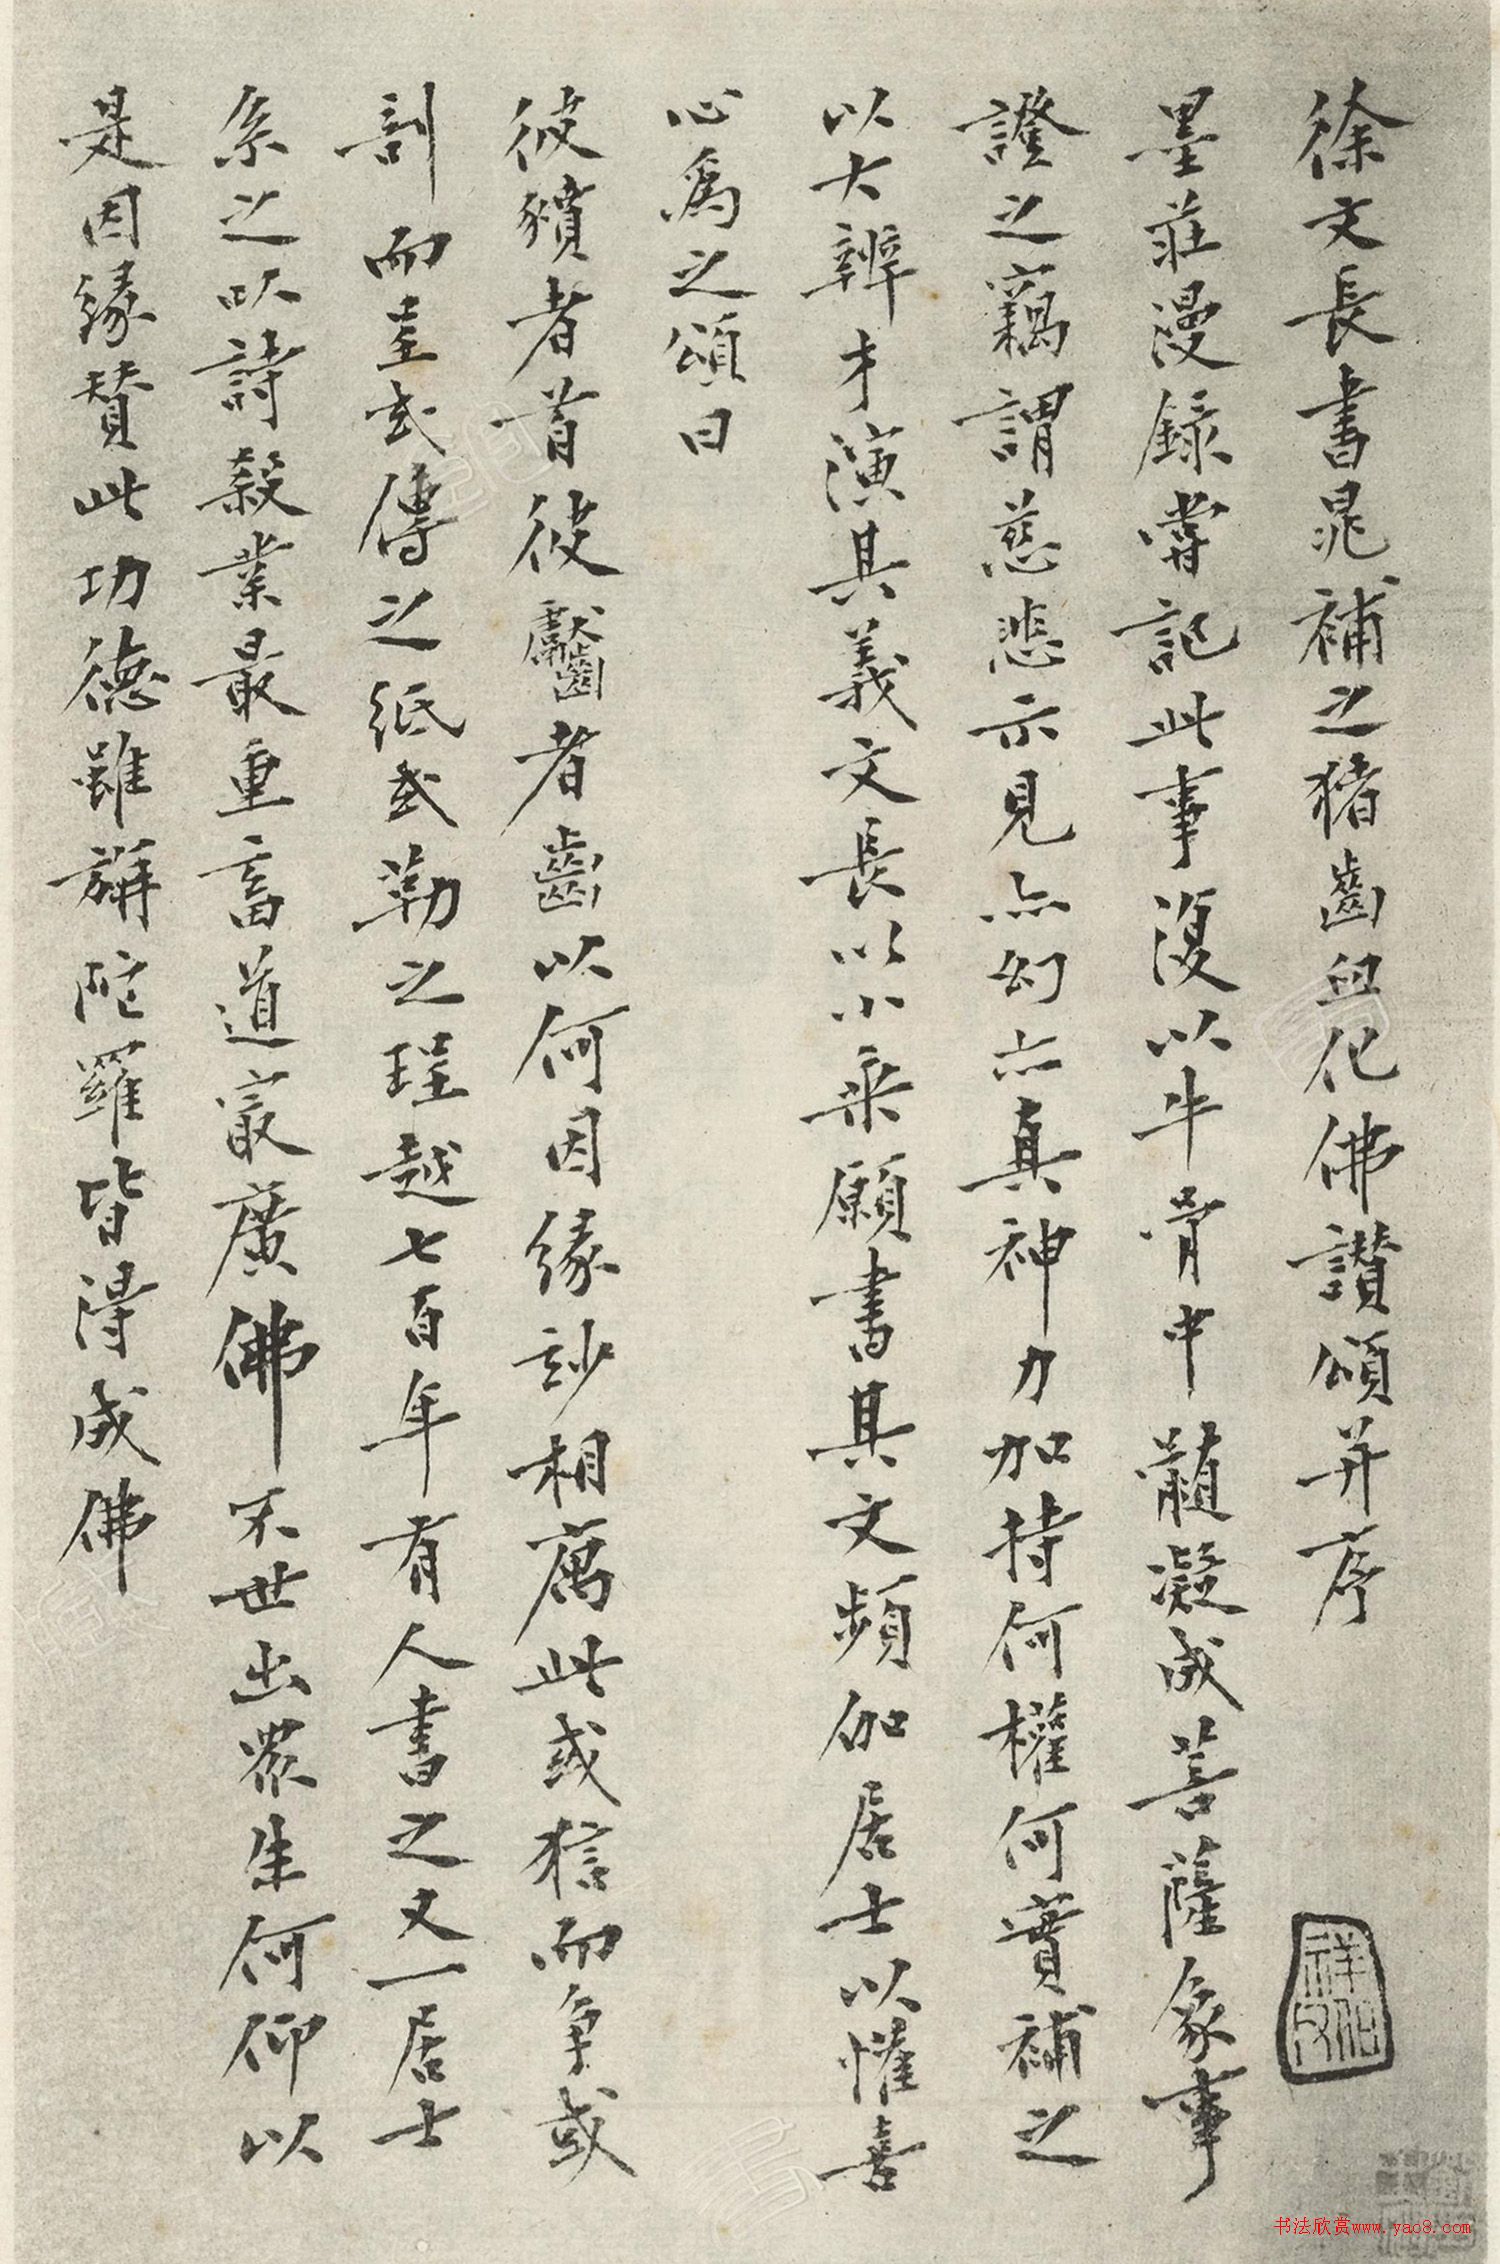 徐文長書晁補之豬齒臼化佛讚頌并序
墨莊漫錄嘗記此事復以牛骨中髓凝成菩薩象事
證之竊謂慈悲示見亦幻亦真神力加持何權何實補之
以大辨才演具義文長以小乘願書其文頻伽居士以懽喜
心為之頌曰
彼豶者首彼齾者齒以何因緣玅相寓此或狺而爭或
割而坴或傳之紙或勒之珵越七百年有人書之又一居士
系之以詩殺業最重畜道寂廣佛不世出眾生何仰以
是因緣贊此功德雖旃陀羅皆得成佛
祥伯
书法欣赏www.yac8.com